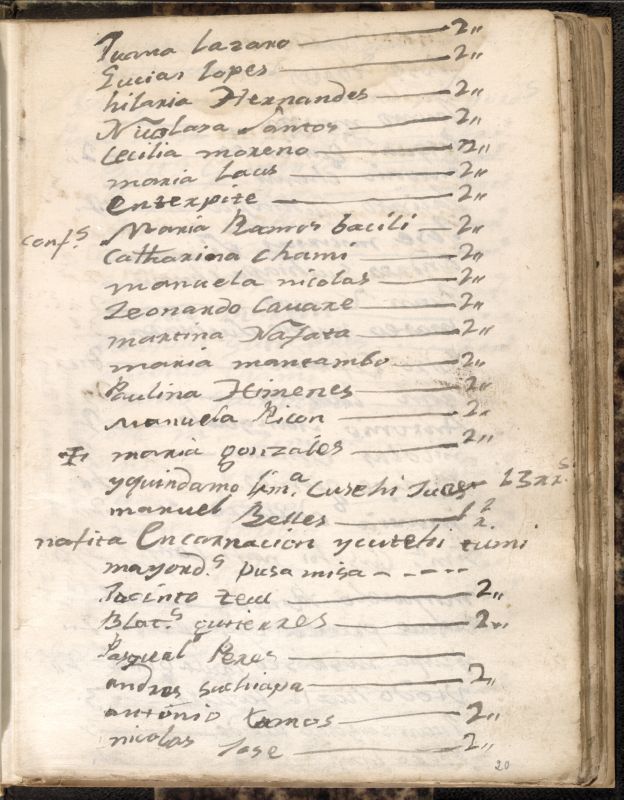 Juana Lazaro — 2"
Lucias Lopes — 2"
hilaria Hernandes — 2"
Nicolasa Santos — 2"
Cecilia moreno — 2"
maria Laus — 2"
Enterpite — 2"
conf.s Maria Ramos bacili — 2"
Catharina Chami — 2"
manuela nicolas — 2"
Leonardo Cavare — 2"
martina Nafata — 2"
maria mantambo — 2"
Paulina Himenes — 2"
Manuela Ricon — 2"
maria gonzales — 2"
yquindamo lim.a Cutehi
manuel Belles —
nafita Encarnacion ycutehi tumi
mayord.s pusamisa - - - -
Jacinto zeu — 2"
Blat.s gutierres — 2"
Pasqual Peres —
andres suchiapa — 2"
antonio Ramos — 2"
nicolas Jose — 2"
20